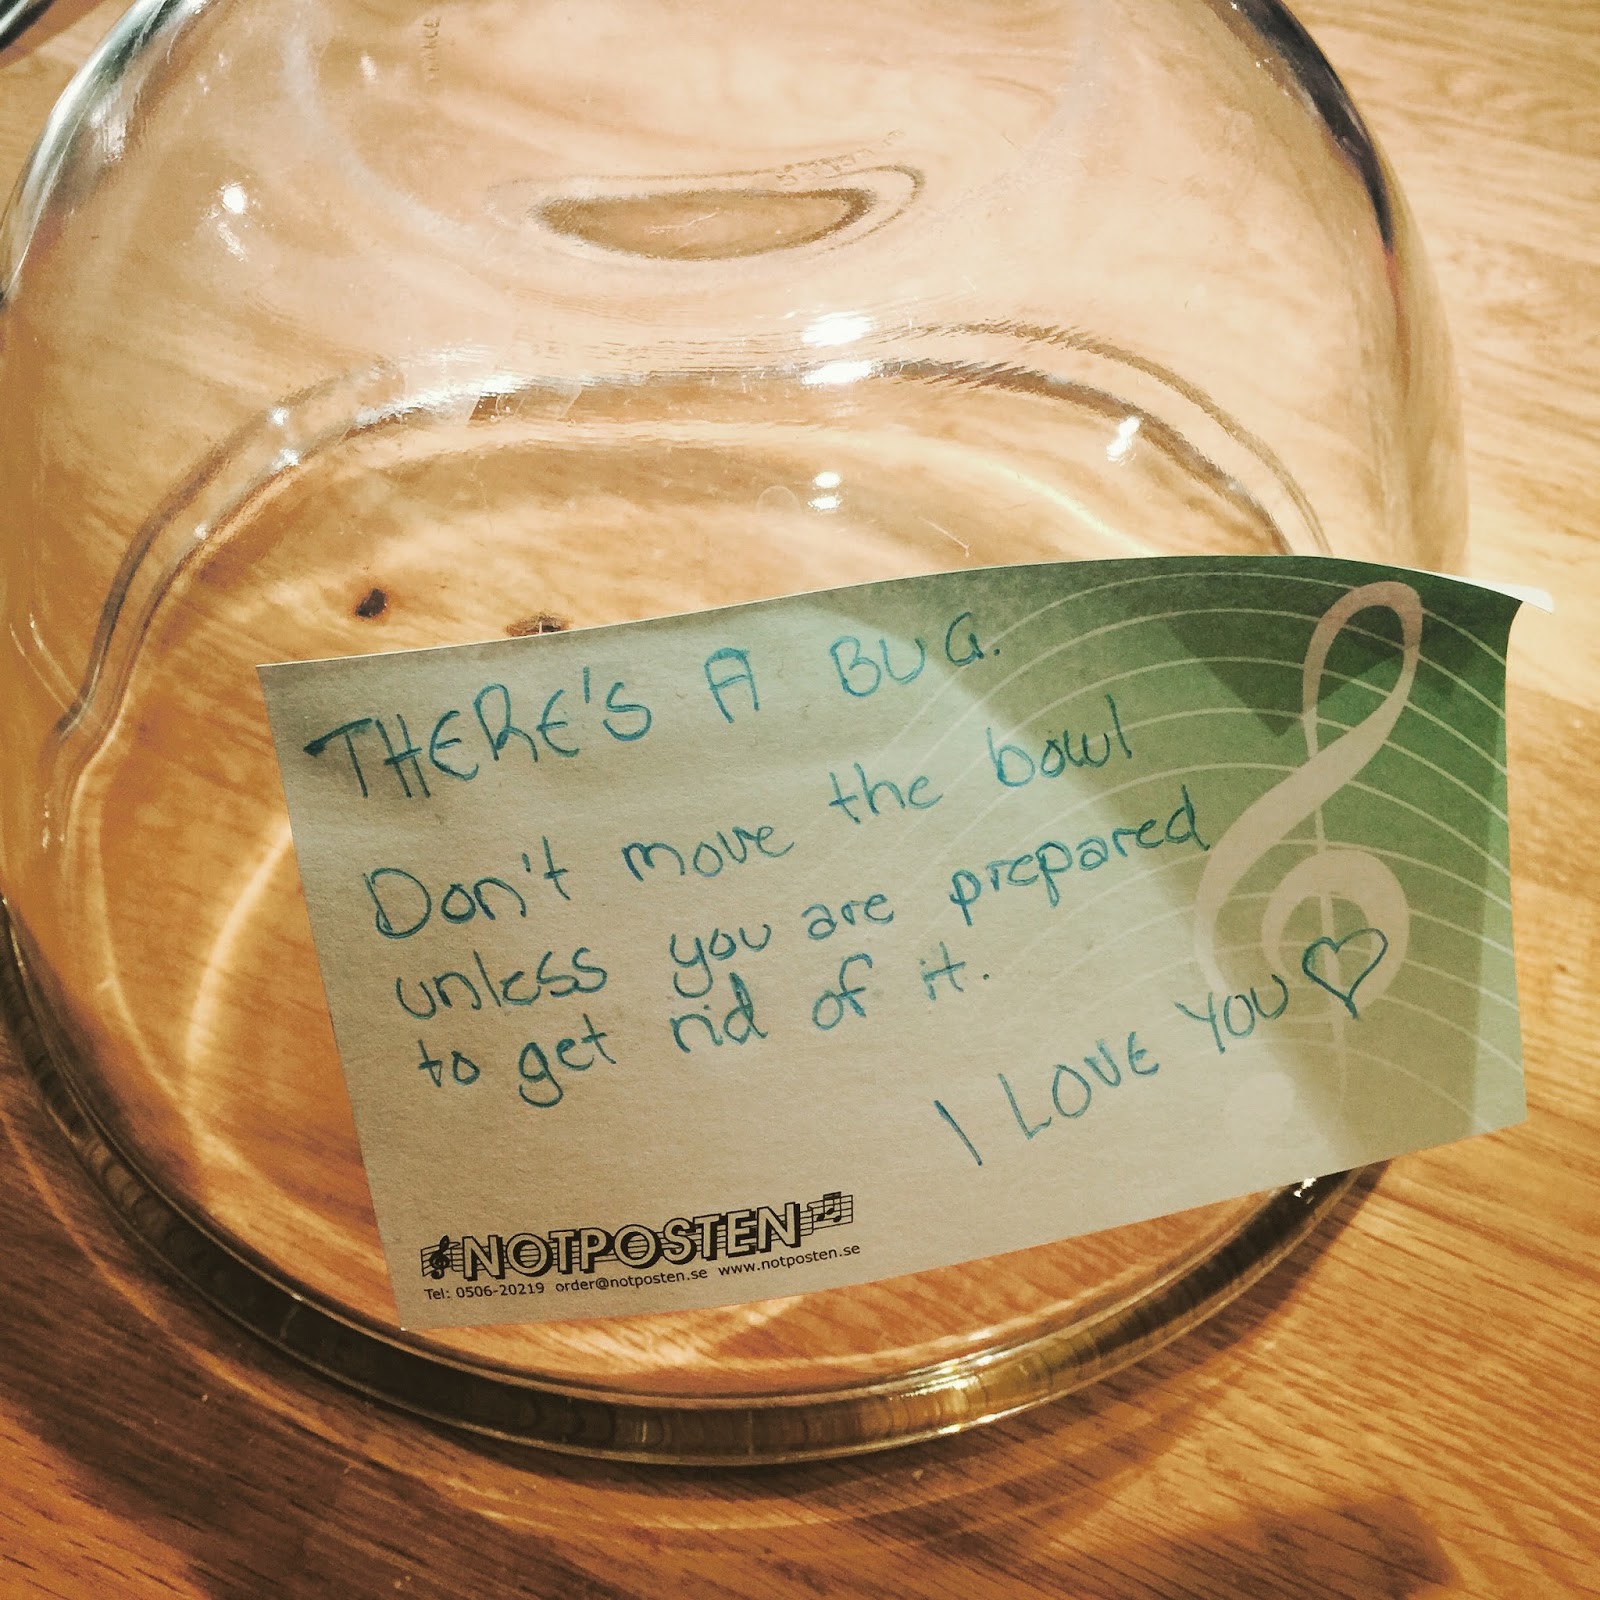 THERE'S A BUG.
Don't move the bowl
unless you are prepared
to get rid of it.
I LOVE YOU ♡
NOTPOSTEN
Tel: 0506-20219 order@notposten.se www.notposten.se